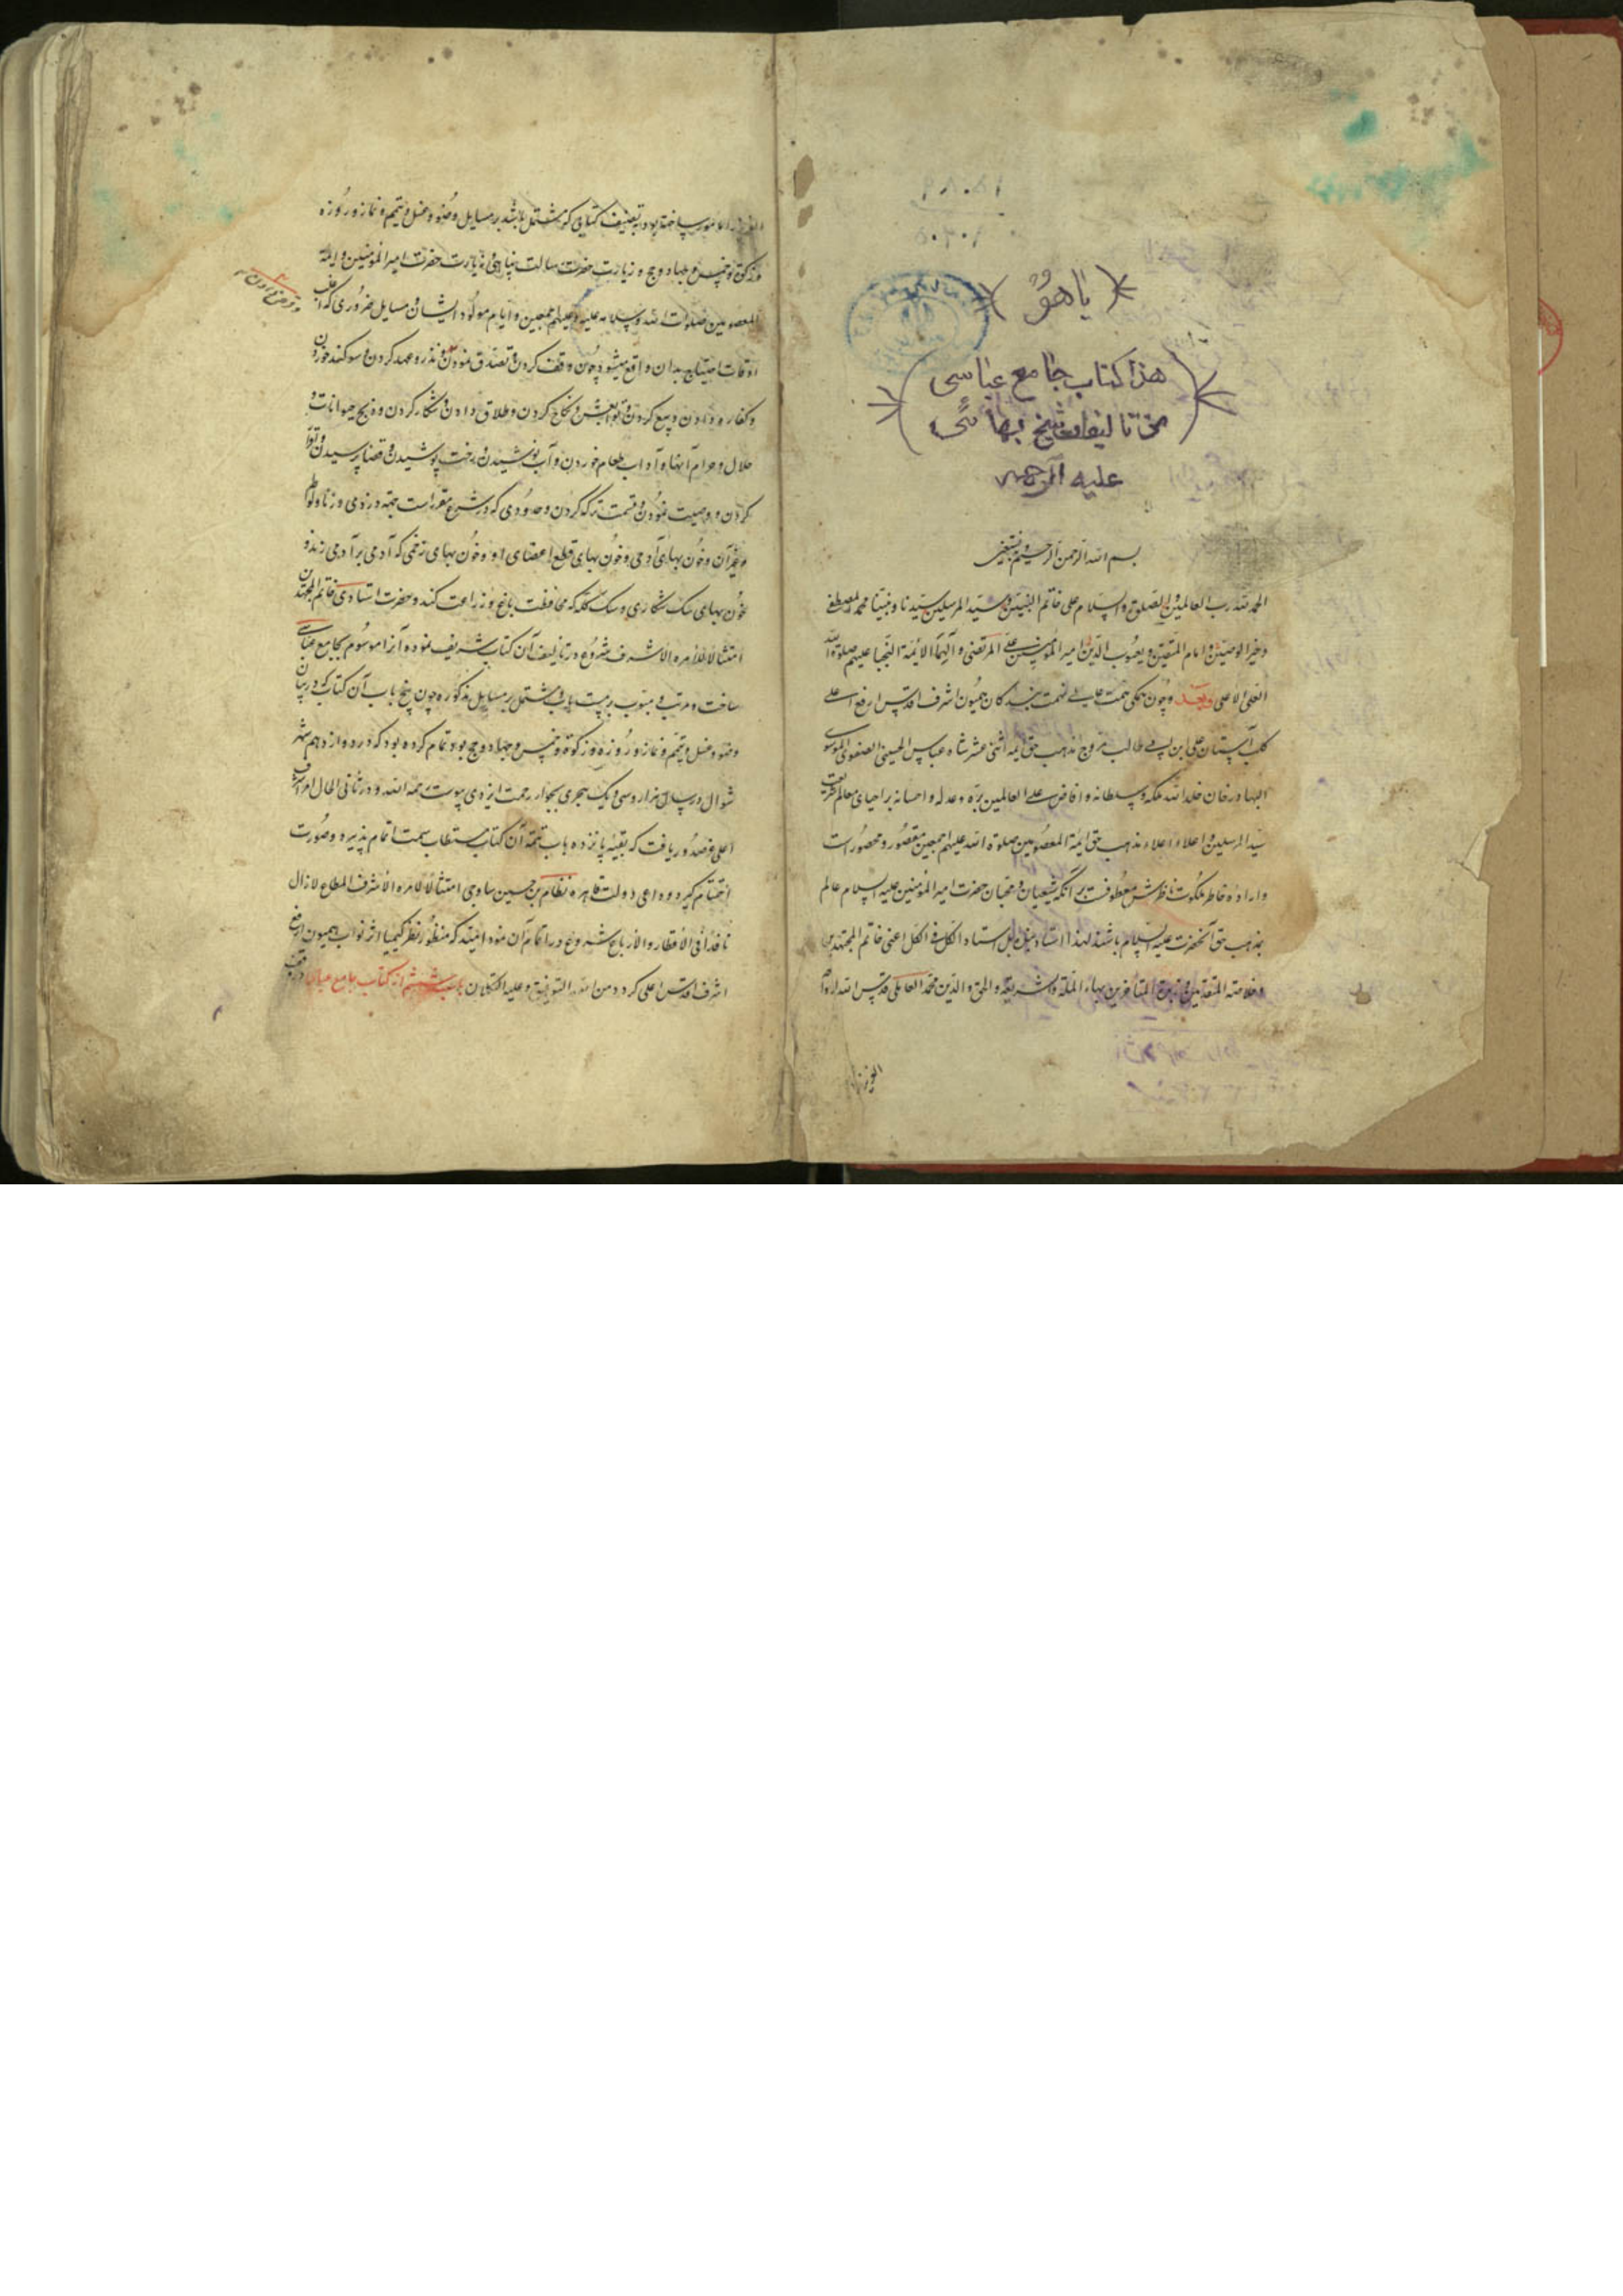 یا هو
هذا کتاب جامع عباسی
من تالیفات شیخ بهائی
علیه الرحمه
بسم الله الرحمن الرحیم و به نستعین
الحمد لله رب العالمین و الصلوة و السلام علی خاتم النبیین و سید المرسلین سیدنا و نبینا محمد المصطفی
و خیر الوصیین و امام المتقین و یعسوب الدین امیر المؤمنین علی المرتضی و آلهما الائمة النجبا علیهم صلوة الله
العلی الاعلی و بعد و چون همگی همت علیا نهمت بندگان همیون اشرف اقدس ارفع اعلی
کلب آستان علی ابن ابی طالب مروج مذهب حق ایمه اثنی عشر شاه عباس الحسینی الصفوی الموسوی
بهادر خان خلد الله ملکه و سلطانه و افاض علی العالمین بره و عدله و احسانه بر احیای معالم شریعت
سید المرسلین و اعلاء اعلام مذهب حق ایمة المعصومین صلوة الله علیهم اجمعین مقصور و محصور است
و اراده خاطر ملکوت ناظرش معطوفست بر آنکه شیعیان و محبان حضرت امیر المؤمنین علیه السلام عالم
بمذهب حق آنحضرت علیه السلام باشند لهذا استاد بل استاد الکل فی الکل اعنی خاتم المجتهدین
و خلاصه المتقدمین و المتأخرین بهاء الملة و الشریعة و الحق و الدین محمد العاملی قدس الله
مامور ساخته بود بتصنیف کتابی که مشتمل باشد بر مسایل وضو و غسل و تیمم و نماز و روزه
و زکوة و خمس و جهاد و حج و زیارت حضرت رسالت پناهی و زیارت حضرت امیر المؤمنین و ایمه
المعصومین صلوات الله و سلامه علیه و علیهم اجمعین و ایام مولود ایشان و مسایل ضروری که اغلب
اوقات احتیاج بدان واقع میشود چون وقف کردن و تصدق نمودن و نذر و عهد کردن و سوگند خوردن
و کفاره دادن و بیع کردن و توابعش و نکاح کردن و طلاق دادن و شکار کردن و ذبح حیوانات و
حلال و حرام آنها و آداب طعام خوردن و آب نوشیدن و رخت پوشیدن و قضا پرسیدن و
کردن و وصیت نمودن و قسمت ترکه کردن و حدودی که در شرع مقرر است جهة دزدی و زنا و لواط
و غیر آن و خون بهای آدمی و خون بهای قطع اعضای او و خون بهای زخمی که آدمی بر آدمی زند و
خون بهای سک شکاری و سک گله که محافظت باغ و زراعت کند و حضرت استادی خاتم المجتهدین
امتثالا لامره الاشرف شروع در تالیف آن کتاب شریف نموده آنرا موسوم بجامع عباسی
ساخت و مرتب و مبوب بر بیست باب و مشتمل بر مسایل مذکوره چون پنج باب آن کتاب که در بیان
وضو و غسل و تیمم و نماز و روزه و زکوة و خمس و جهاد و حج بود تمام کرده بود که در دوازدهم شهر
شوال در سال هزار و سی و یک هجری بجوار رحمت ایزدی پیوست رحمه الله و در ثانی الحال امر اشرف
اعلی عز صدور یافت که بقیه پانزده باب تتمه آن کتاب مستطاب سمت اتمام پذیره و صورت
اختتام گیرد و داعی دولت قاهره نظام بن حسین ساوجی امتثالا لامره الاشرف المطاع لا زال
نافذا فی الاقطار و الارباع شروع در اتمام آن نمود امید که منظور نظر کیمیا اثر نواب همیون ارفع
اشرف اقدس اعلی گردد و من الله التوفیق و علیه التکلان باب ششم از کتاب جامع عباسی در وقف